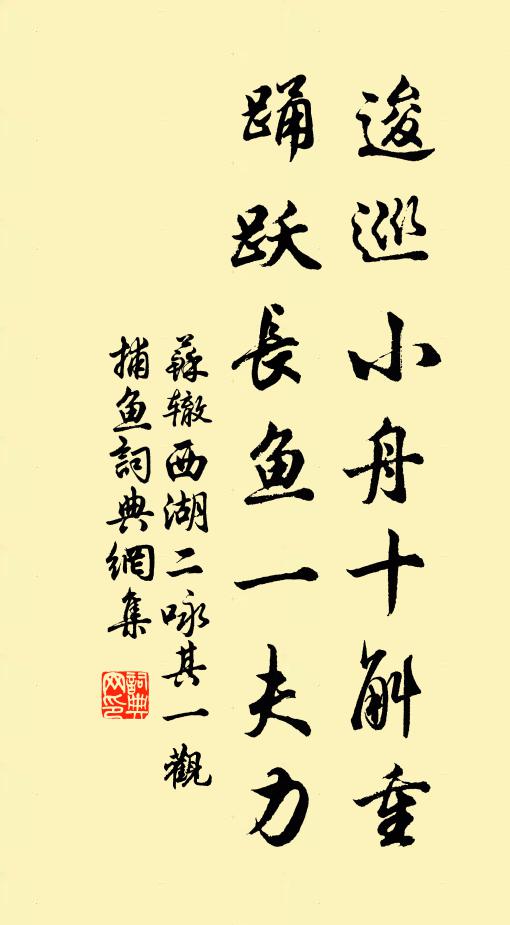 逡巡小舟十斛重
踊跃長鱼一夫力
蘇辙西湖二咏其一觀
捕鱼詞典網集
詞典网印